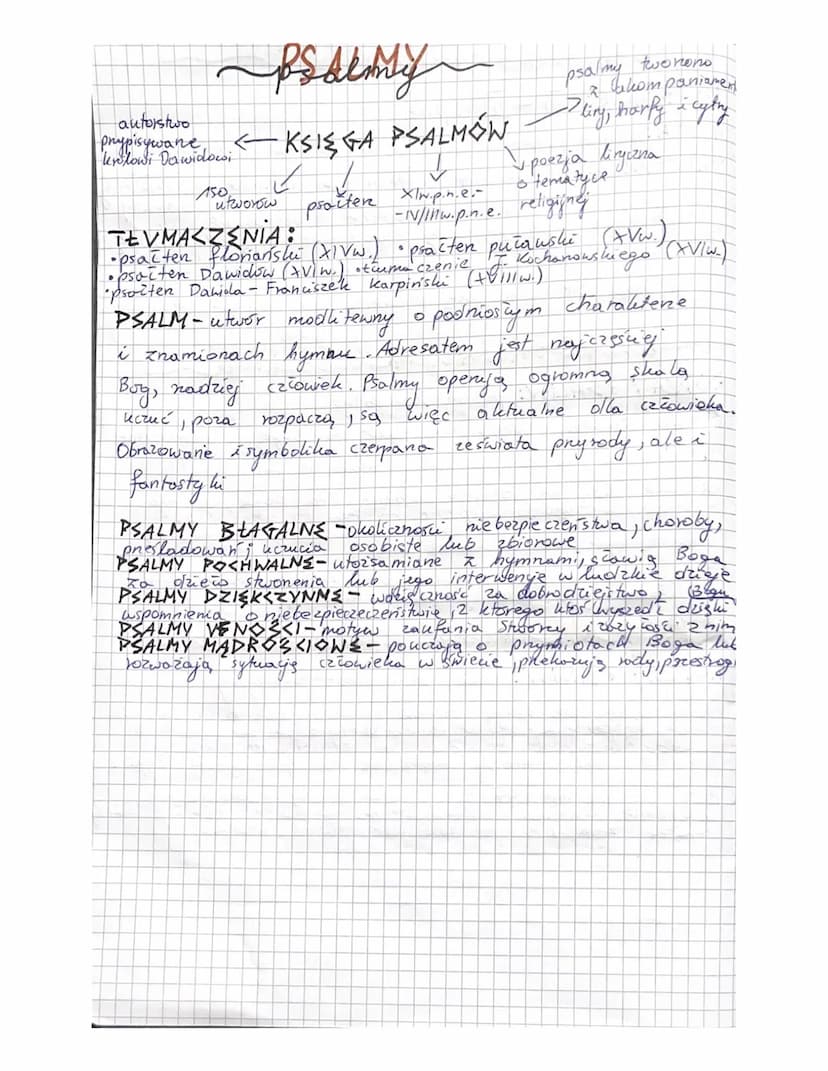 PSALMY
psalmy
psalmy tworzono
z akompaniamen
liry, harfy i cytry
autorstwo
przypisywane
królowi Dawidowi
KSIĘGA PSALMÓW
poezja liryczna
o tematyce
religijnej
150
utworów
psałterz
XIw.p.n.e.-
-IV/IIIw.p.n.e.
TŁUMACZENIA:
•psałterz floriański (XIVw.) •psałterz puławski (XVw.)
•psałterz Dawidów (XVIw.) •tłumaczenie J. Kochanowskiego (XVIw.)
•psałterz Dawida – Franciszek Karpiński (XVIIIw.)
PSALM – utwór modlitewny o podniosłym charakterze
i znamionach hymnu. Adresatem jest najczęściej
Bog, rzadziej człowiek. Psalmy operują ogromną skalą
uczuć, poza rozpaczą, są więc aktualne dla człowieka.
Obrazowanie i symbolika czerpana ze świata przyrody, ale i
fantastyki
PSALMY BŁAGALNE – okoliczności niebezpieczeństwa, choroby,
prześladowań, uczucia osobiste lub zbiorowe
PSALMY POCHWALNE – utożsamiane z hymnami, sławią Boga
za dzieło stworzenia lub jego interwencje w ludzkie dzieje
PSALMY DZIĘKCZYNNE – wdzięczność za dobrodziejstwo, Bogu
wspomnienia o niebezpieczeństwie, z którego ktoś wyszedł dzięki
PSALMY UFNOŚCI – motyw zaufania Stwórcy i zażyłości z nim
PSALMY MĄDROŚCIOWE – pouczają o przymiotach Boga lub
rozważają sytuację człowieka w świecie, przekazują rady, przestrog